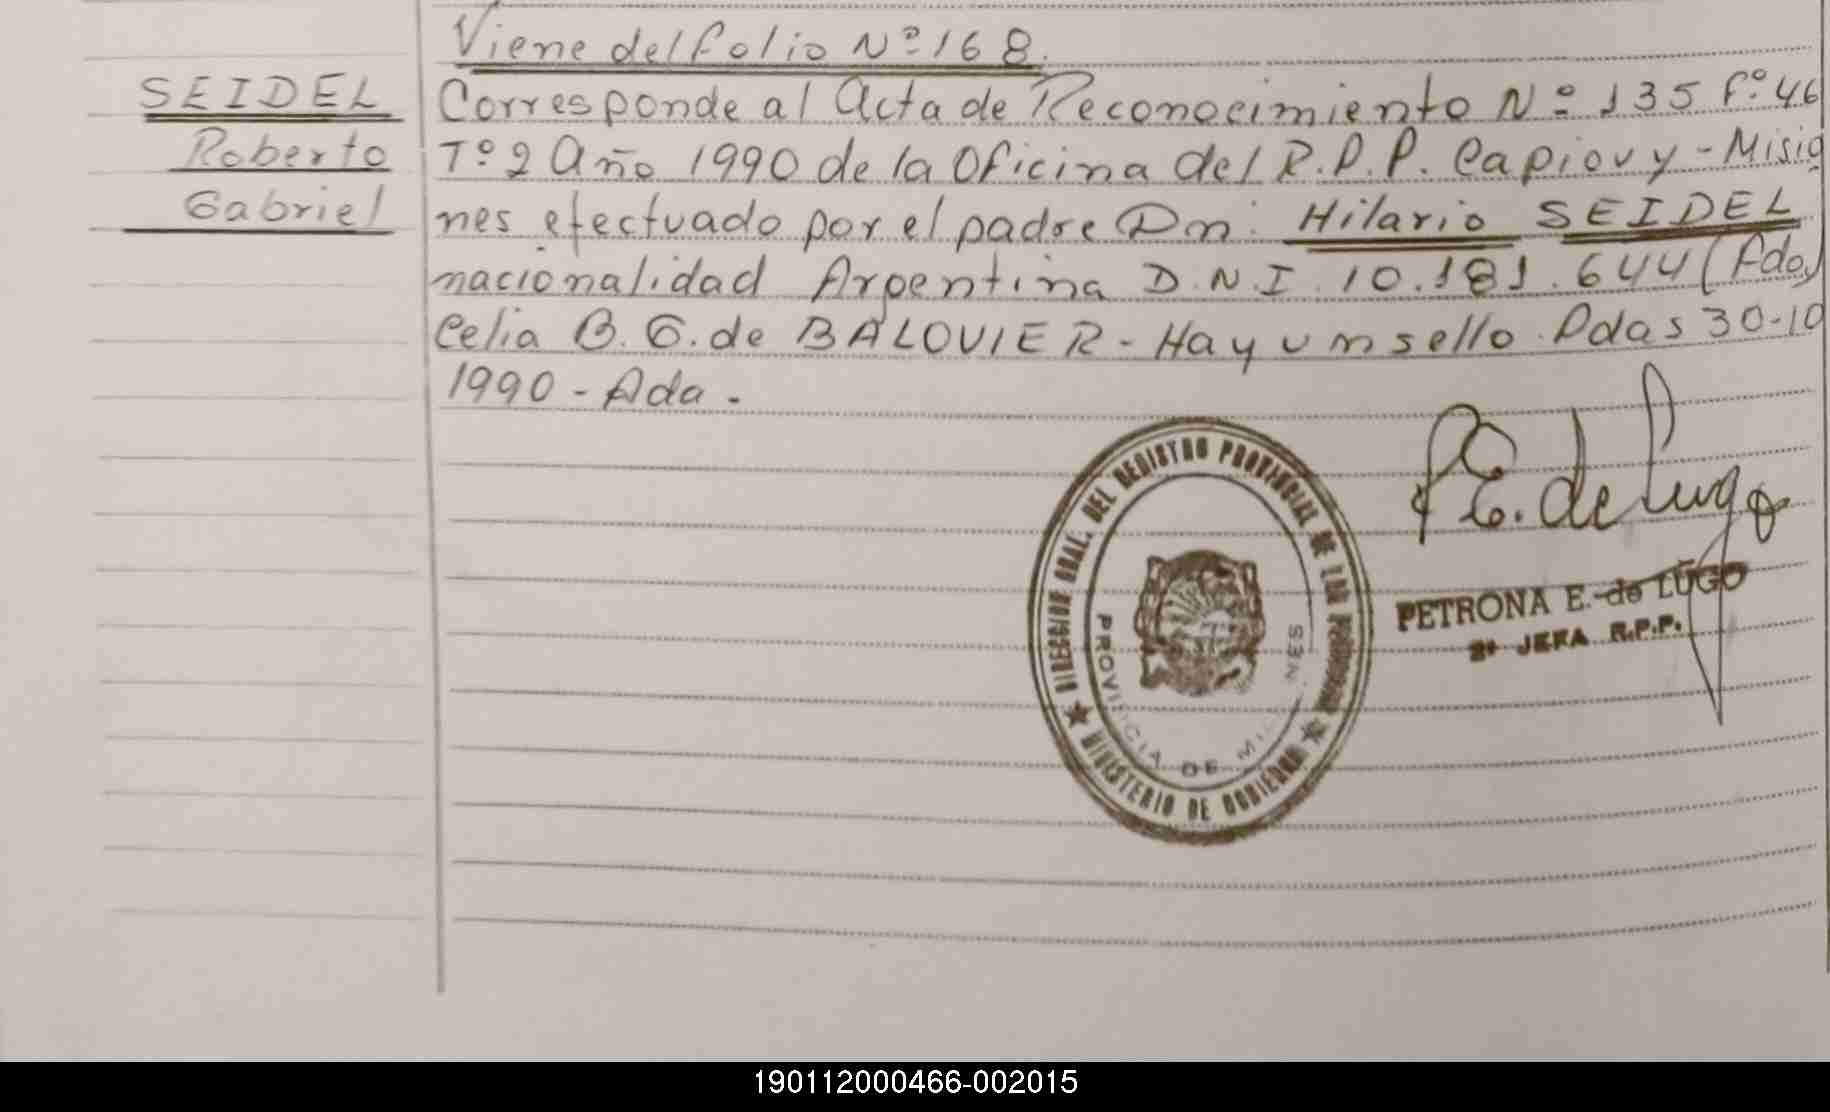 Viene del folio Nº 168.
SEIDEL
Roberto
Gabriel
Corresponde al Acta de Reconocimiento Nº 135 Fº 46
Tº 2 Año 1990 de la Oficina del R.P.P. Capiovy - Misio
nes efectuado por el padre Dn: Hilario SEIDEL
nacionalidad Argentina D.N.I. 10.181.644 (Fdo)
Celia B. G. de BALOUIER - Hay un sello. Pdas 30-10
1990 - Ada.
P E. de Lugo
PETRONA E. de LUGO
2º JEFA R.P.P.
DIRECCION GRAL. DEL REGISTRO PROVINCIAL DE LAS PERSONAS
MINISTERIO DE GOBIERNO
PROVINCIA DE MISIONES
190112000466-002015